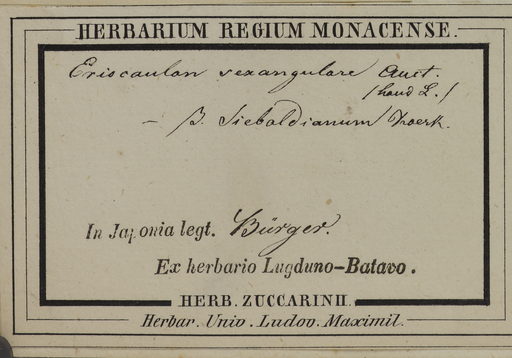 HERBARIUM REGIUM MONACENSE.
Eriocaulon sexangulare Auct.
(haud L.)
— β. Sieboldianum
In Japonia legt. Bürger.
Ex herbario Lugduno-Batavo.
HERB. ZUCCARINII.
Herbar. Univ. Ludov. Maximil.